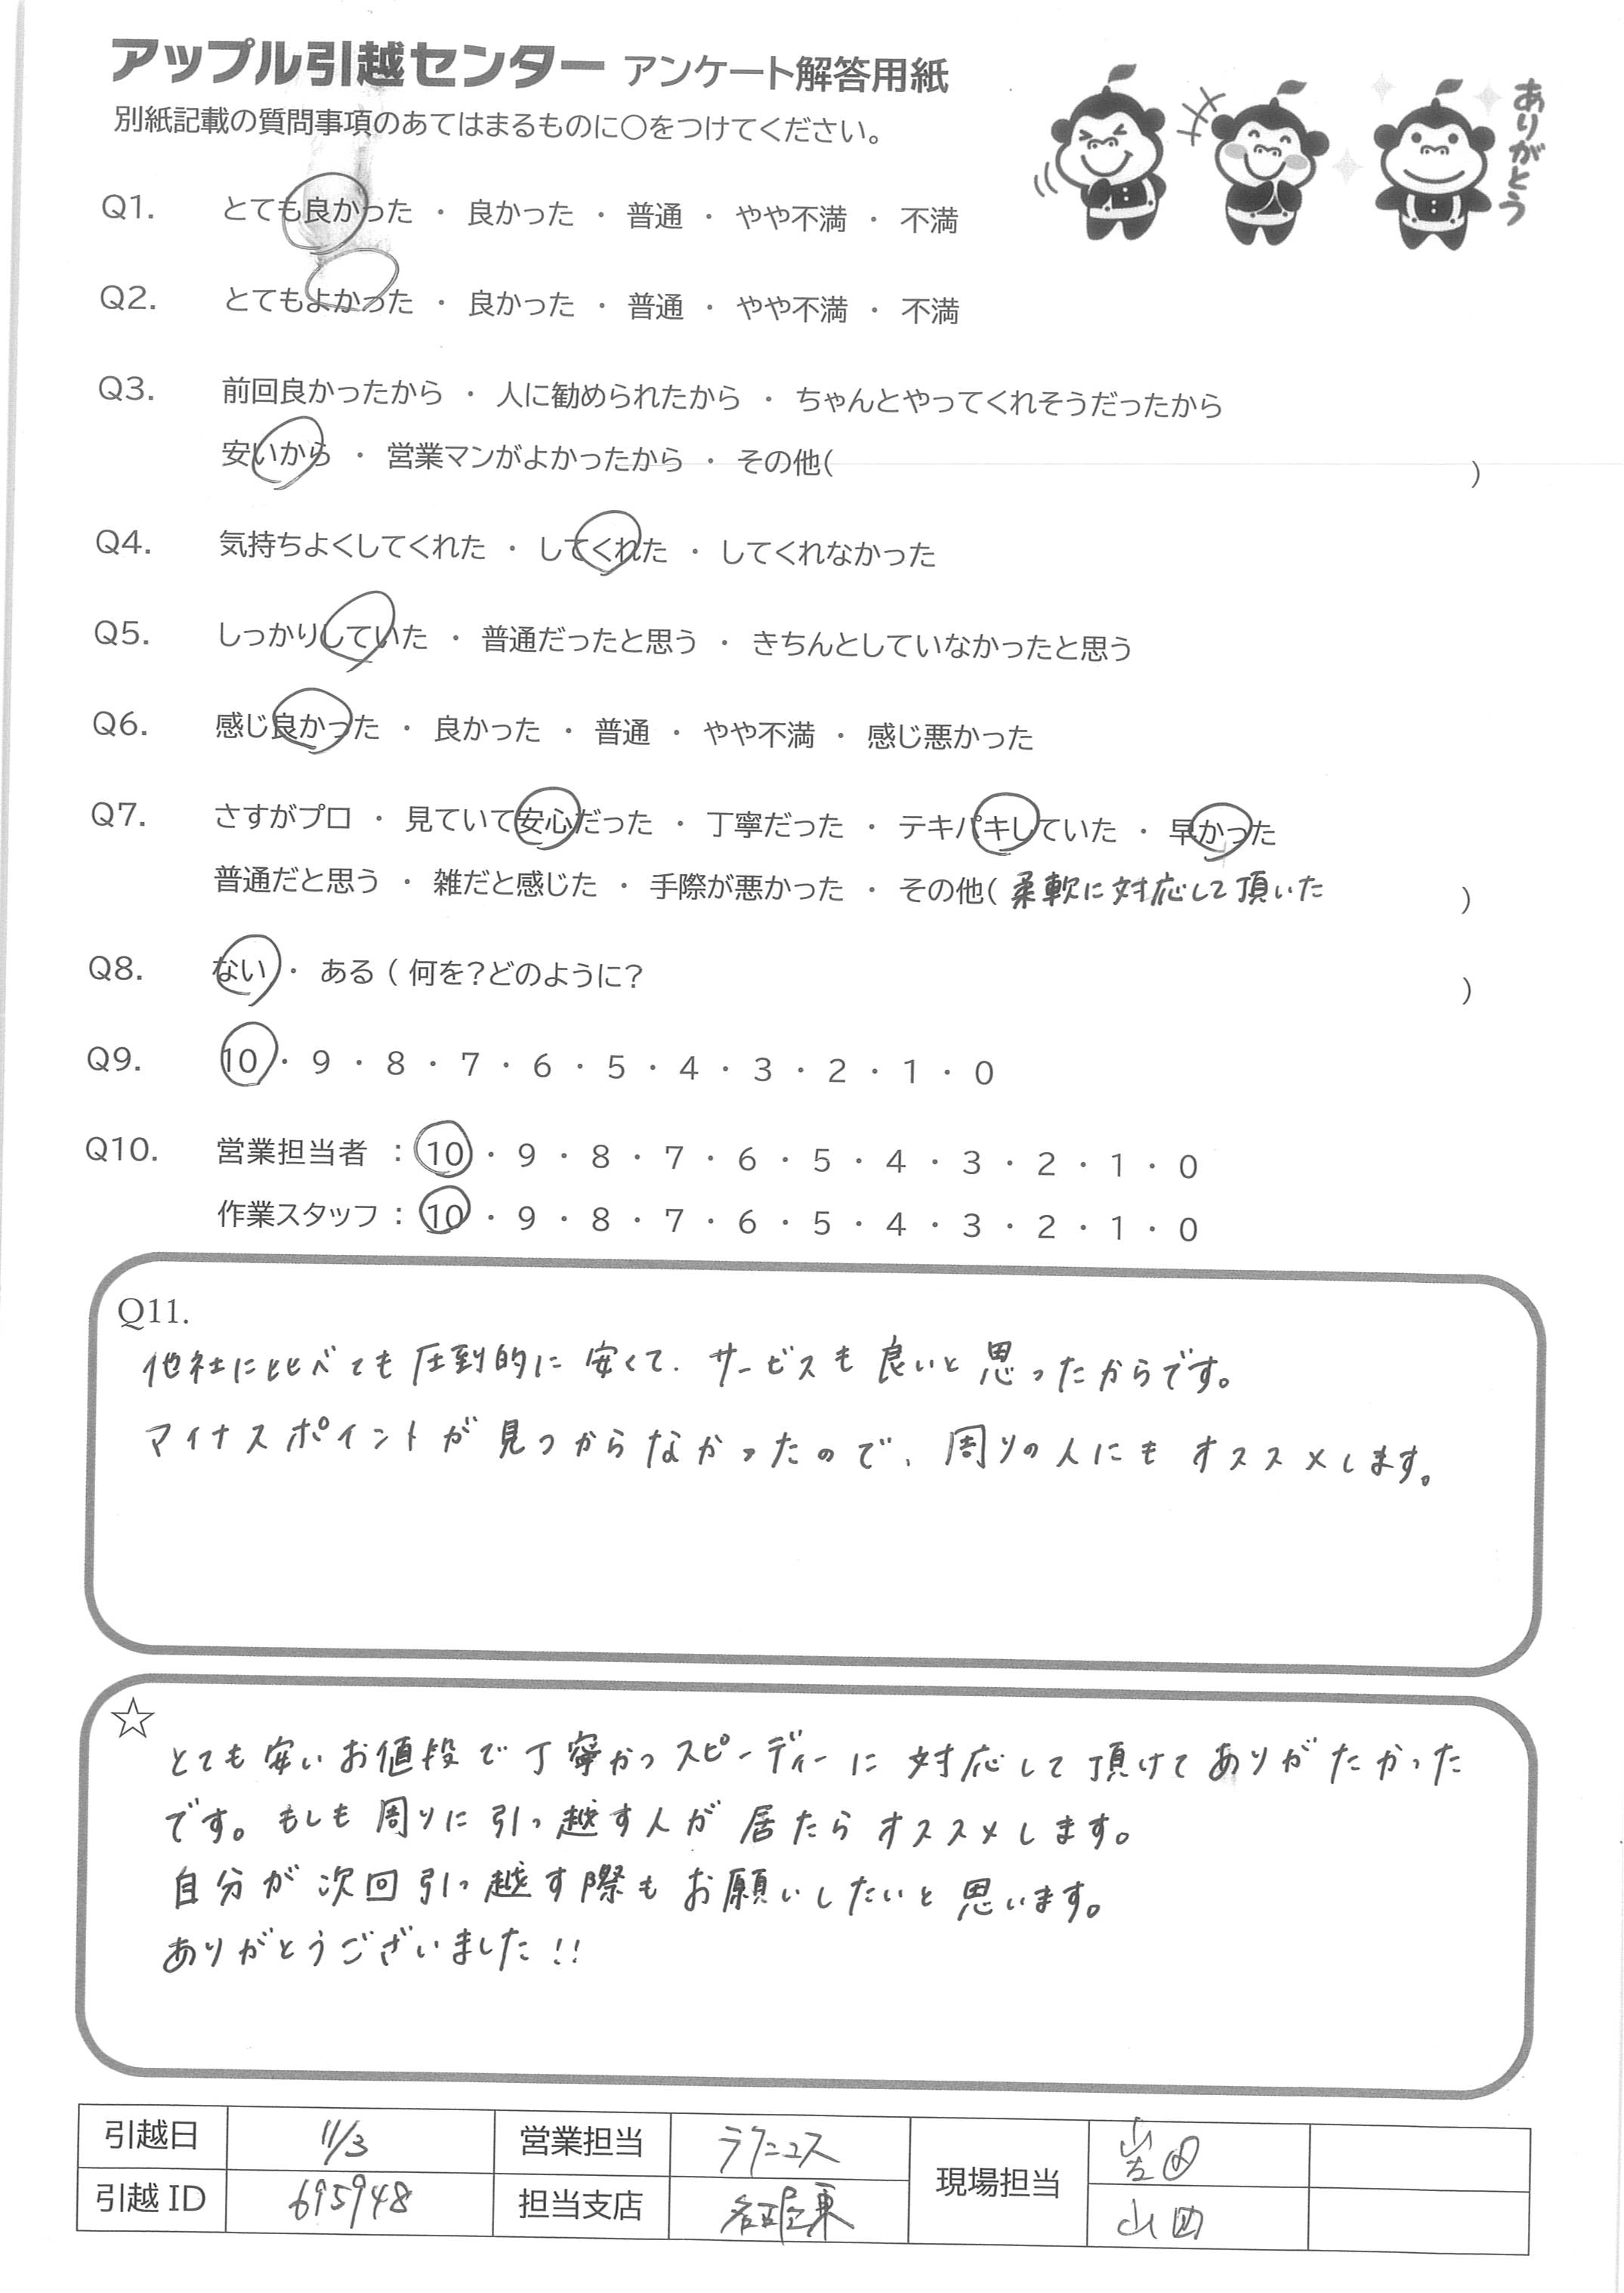 アップル引越センター アンケート解答用紙
別紙記載の質問事項のあてはまるものに○をつけてください。
ありがとう
Q1. とても良かった ・ 良かった ・ 普通 ・ やや不満 ・ 不満
Q2. とてもよかった ・ 良かった ・ 普通 ・ やや不満 ・ 不満
Q3. 前回良かったから ・ 人に勧められたから ・ ちゃんとやってくれそうだったから
安いから ・ 営業マンがよかったから ・ その他( )
Q4. 気持ちよくしてくれた ・ してくれた ・ してくれなかった
Q5. しっかりしていた ・ 普通だったと思う ・ きちんとしていなかったと思う
Q6. 感じ良かった ・ 良かった ・ 普通 ・ やや不満 ・ 感じ悪かった
Q7. さすがプロ ・ 見ていて安心だった ・ 丁寧だった ・ テキパキしていた ・ 早かった
普通だと思う ・ 雑だと感じた ・ 手際が悪かった ・ その他( 柔軟に対応して頂いた )
Q8. ない ・ ある ( 何を?どのように? )
Q9. 10 ・ 9 ・ 8 ・ 7 ・ 6 ・ 5 ・ 4 ・ 3 ・ 2 ・ 1 ・ 0
Q10. 営業担当者 : 10 ・ 9 ・ 8 ・ 7 ・ 6 ・ 5 ・ 4 ・ 3 ・ 2 ・ 1 ・ 0
作業スタッフ : 10 ・ 9 ・ 8 ・ 7 ・ 6 ・ 5 ・ 4 ・ 3 ・ 2 ・ 1 ・ 0
Q11.
他社に比べても圧倒的に安くて、サービスも良いと思ったからです。
マイナスポイントが見つからなかったので、周りの人にもオススメします。
☆
とても安いお値段で丁寧かつスピーディーに対応して頂けてありがたかった
です。もしも周りに引っ越す人が居たらオススメします。
自分が次回引っ越す際もお願いしたいと思います。
ありがとうございました!!
引越日 11/3 営業担当 現場担当 岩田
引越ID 695948 担当支店 名古屋東 山田